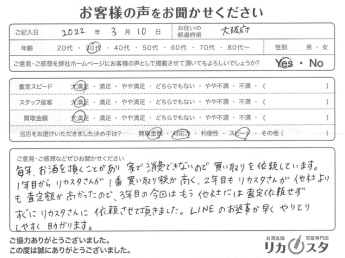 お客様の声をお聞かせください
ご記入日 2022 年 3 月 10 日 お住いの都道府県 大阪府
年齢 20代・30代・40代・50代・60代・70代・80代〜 性別 男・女
ご意見・ご感想を弊社ホームページにお客様の声として掲載させて頂いてもよろしいでしょうか? Yes・No
査定スピード 大満足・満足・やや満足・どちらでもない・やや不満・不満・( )
スタッフ接客 大満足・満足・やや満足・どちらでもない・やや不満・不満・( )
買取金額 大満足・満足・やや満足・どちらでもない・やや不満・不満・( )
当店をお選びいただきました決め手は? 買取金額・対応力・利便性・ ・その他( )
ご意見・ご感想などぜひお聞かせください
毎年、お酒を頂くことがあり 家で消費できないので買い取りを依頼しています。
1年目からリカスタさんが1番買い取り額が高く、2年目もリカスタさんが他社より
も査定額が高かったので、3年目の今回はもう他社には査定依頼せず
すぐにリカスタさんに依頼させて頂きました。LINEのお返事が早くやりとり
しやすく助かります。
ご協力ありがとうございました。
この度は誠にありがとうございました。
お酒高価買取専門店
リカスタ